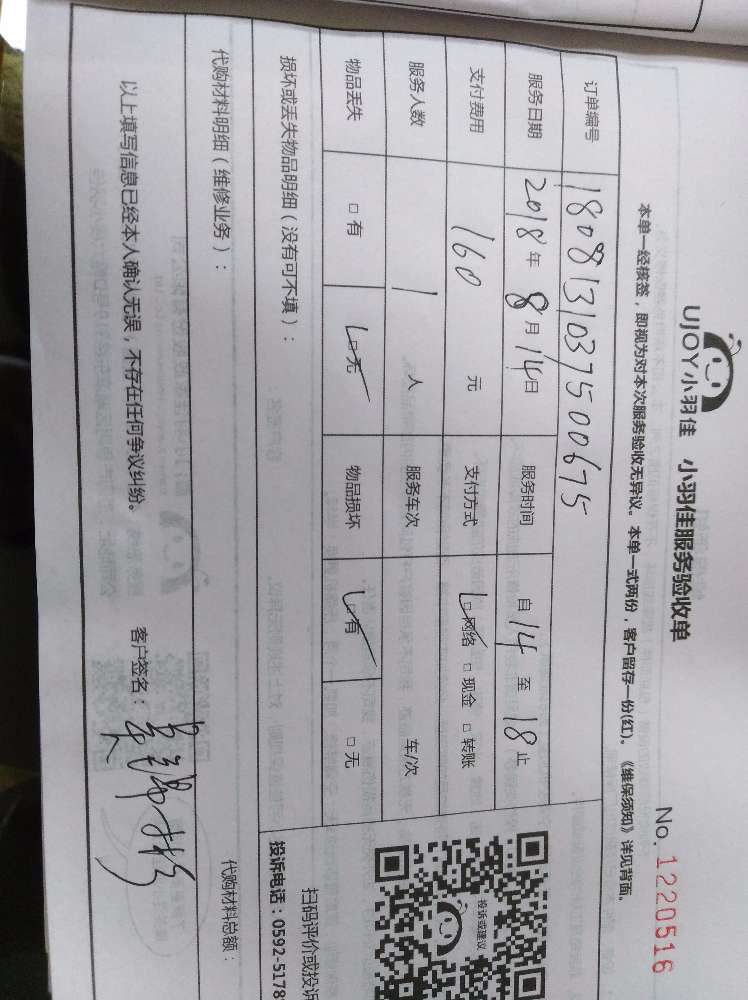 UJOY小羽佳 小羽佳服务验收单
No. 1220516
本单一经核签，即视为对本次服务验收无异议。本单一式两份，客户留存一份(红)。《维保须知》详见背面。
订单编号 1808131037500675
服务日期 2018年8月14日 服务时间 自14至18止
支付费用 160元 支付方式 □网络 □现金 □转账
服务人数 1人 服务车次 车/次
物品丢失 □有 □无 物品损坏 □有 □无
损坏或丢失物品明细（没有可不填）：
代购材料明细（维修业务）：
代购材料总额：
以上填写信息已经本人确认无误，不存在任何争议纠纷。
客户签名：
投诉或建议
扫码评价或投诉
投诉电话：0592-5178